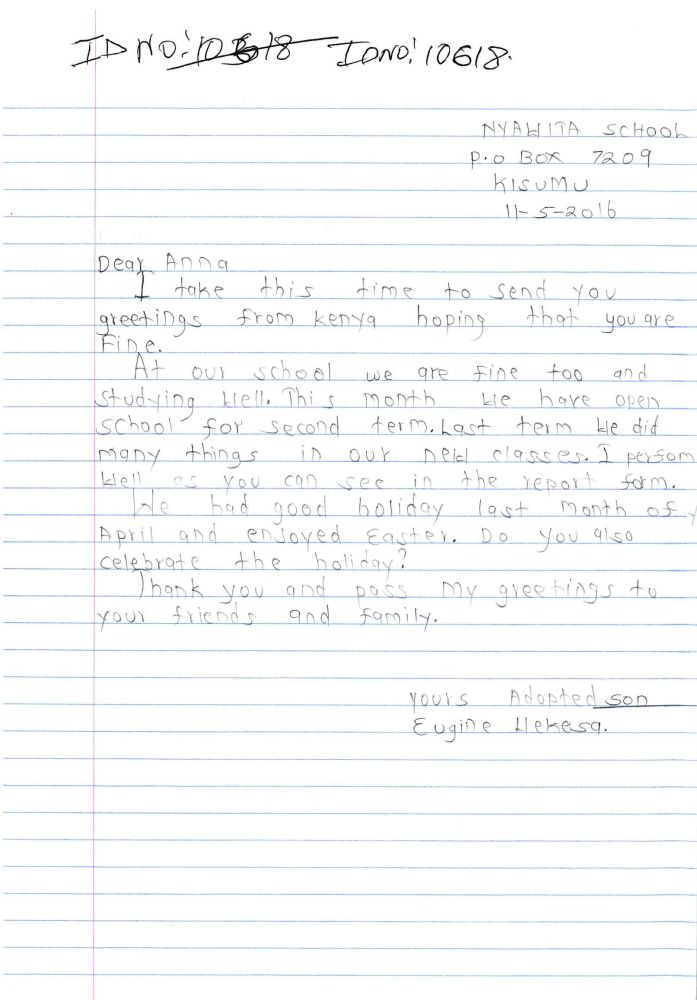 ID NO: 10618 IDNO: 10618.
NYAWITA SCHOOL
P.O BOX 7209
KISUMU
11-5-2016
Dear Anna
I take this time to send you
greetings from Kenya hoping that you are
Fine.
At our school we are fine too and
studying Well. This month We have open
school for second term. Last term We did
many things in our new classes. I perfom
Well as you can see in the report form.
We had good holiday last month of
April and enjoyed Easter. Do you also
celebrate the holiday?
Thank you and pass my greetings to
your friends and family.
yours Adopted son
Eugine Wekesa.